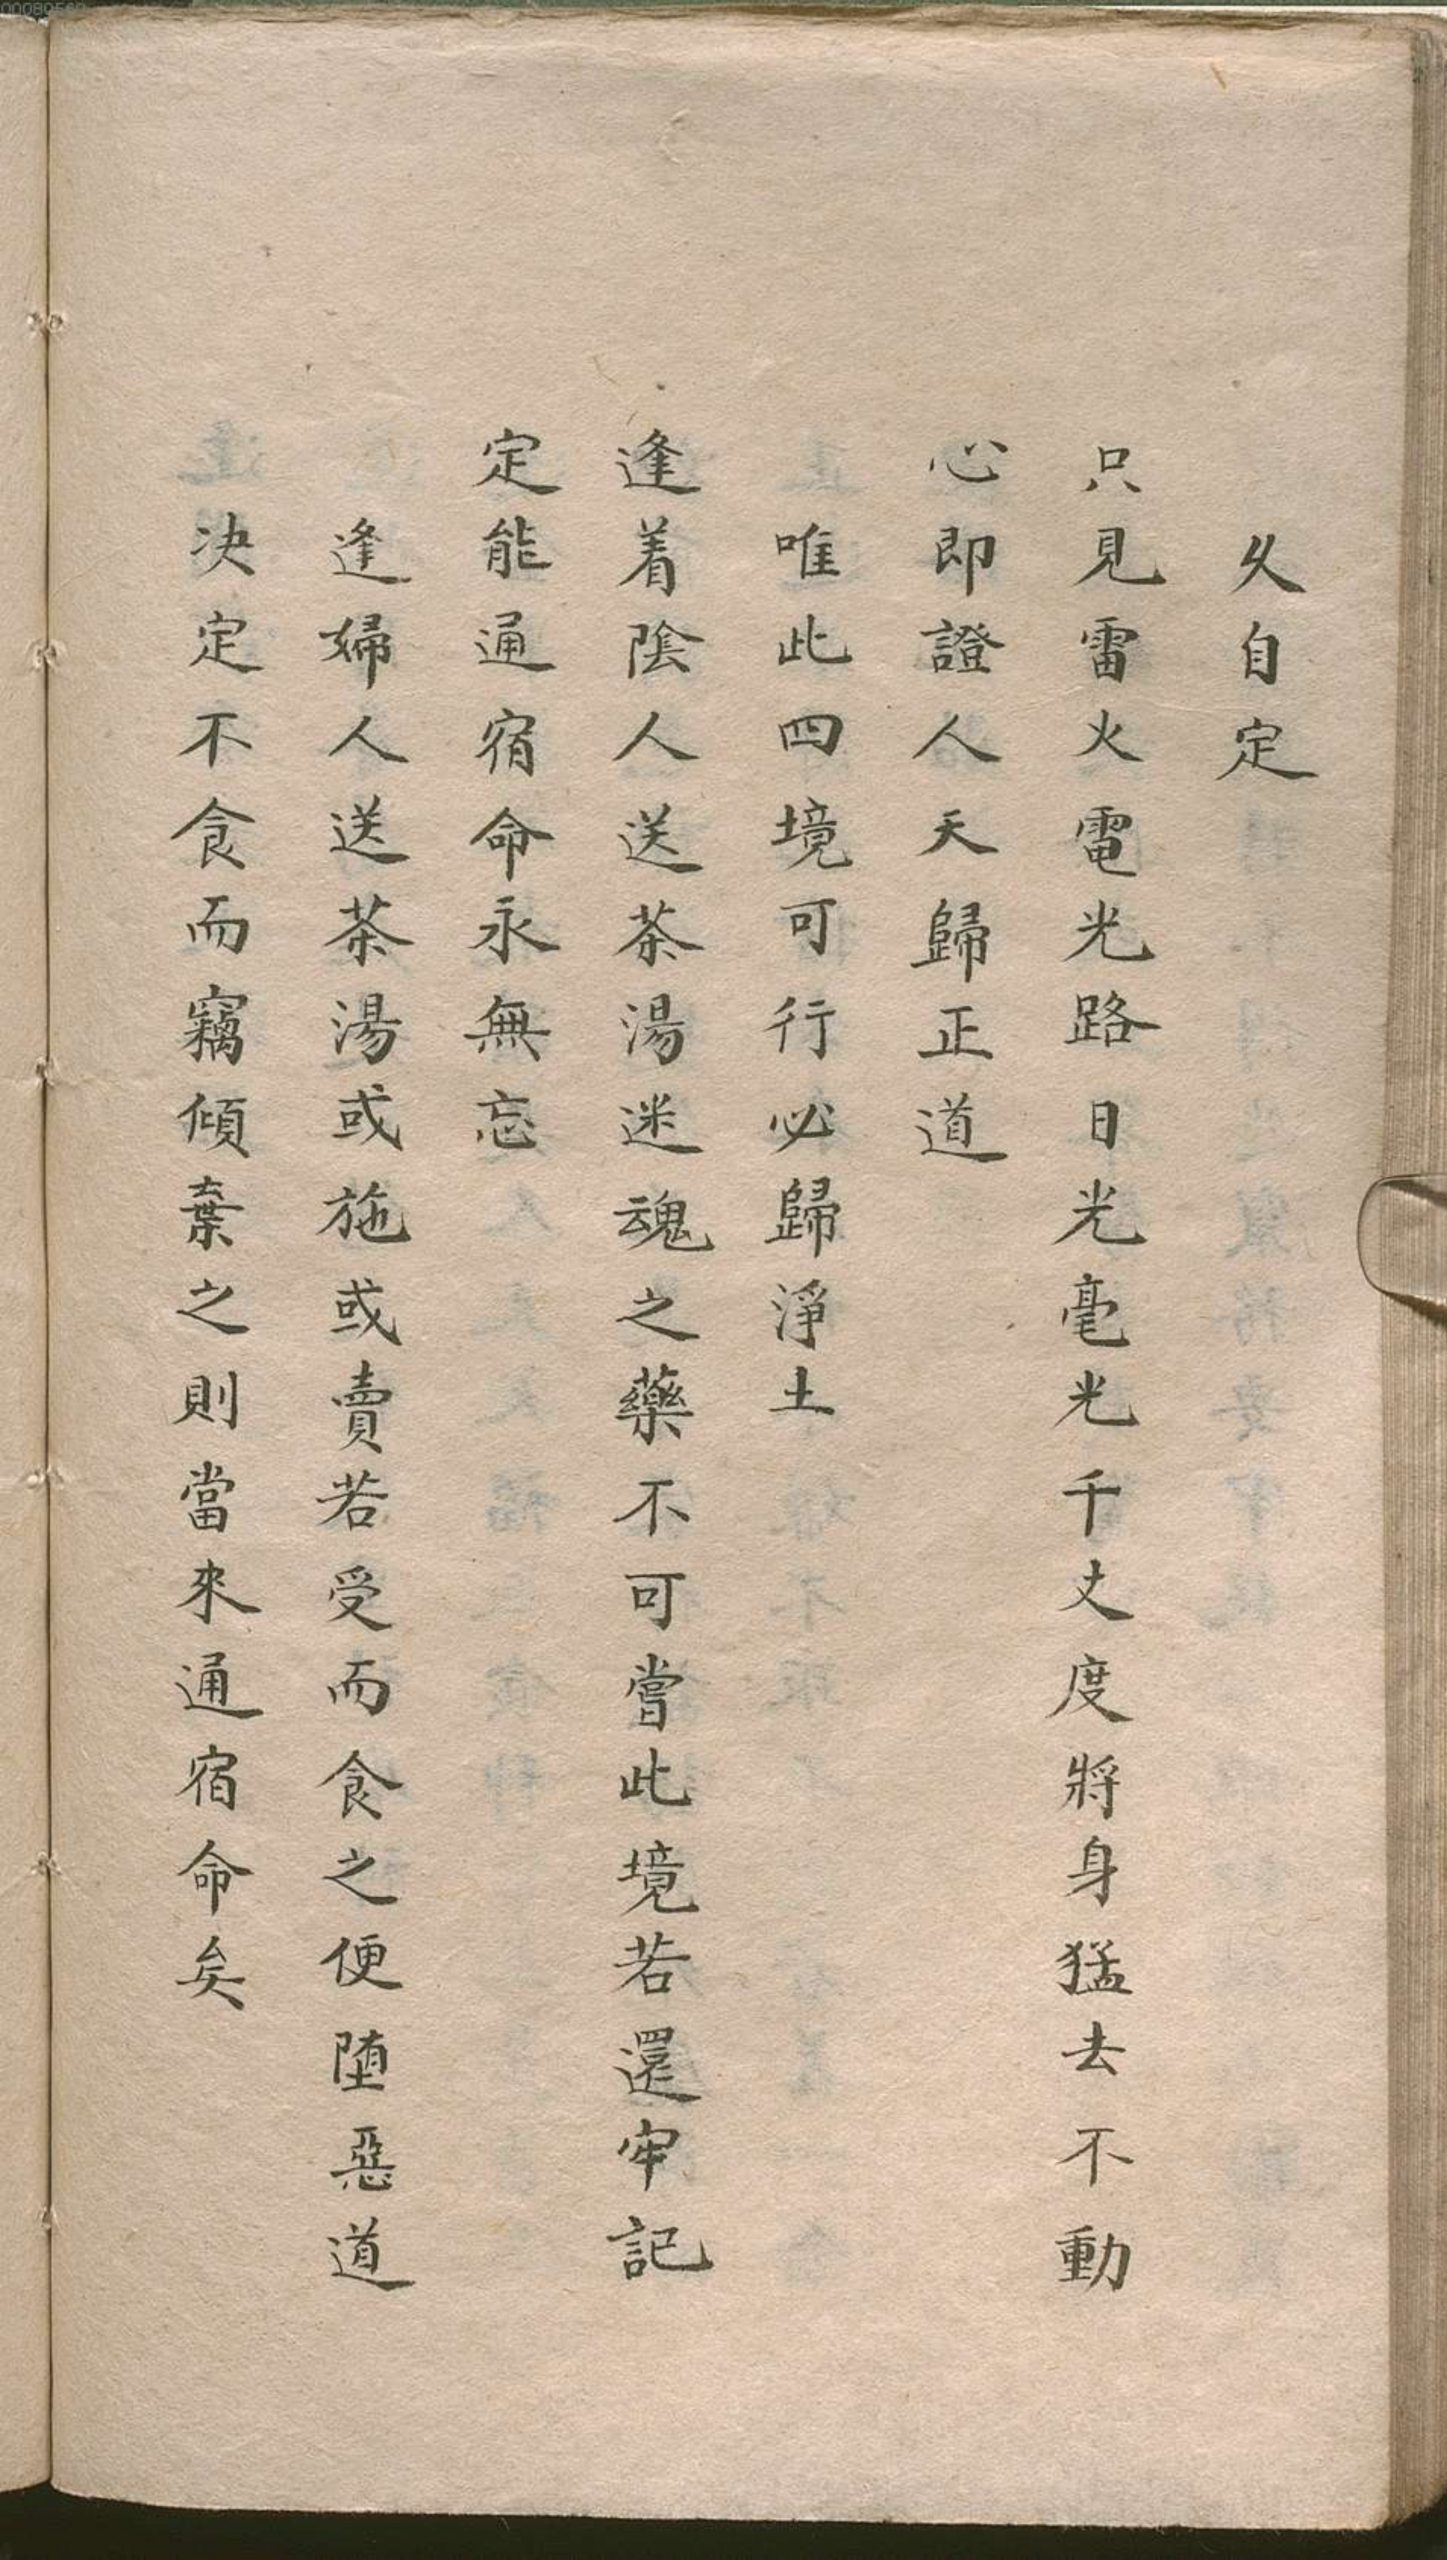 久自定
只見雷火電光路日光毫光千丈度將身猛去不動
心即證人天歸正道
唯此四境可行必歸淨土
逢着陰人送茶湯迷魂之藥不可嘗此境若還牢記
定能通宿命永無忘
逢婦人送茶湯或施或賣若受而食之便堕惡道
决定不食而竊傾棄之則當來通宿命矣